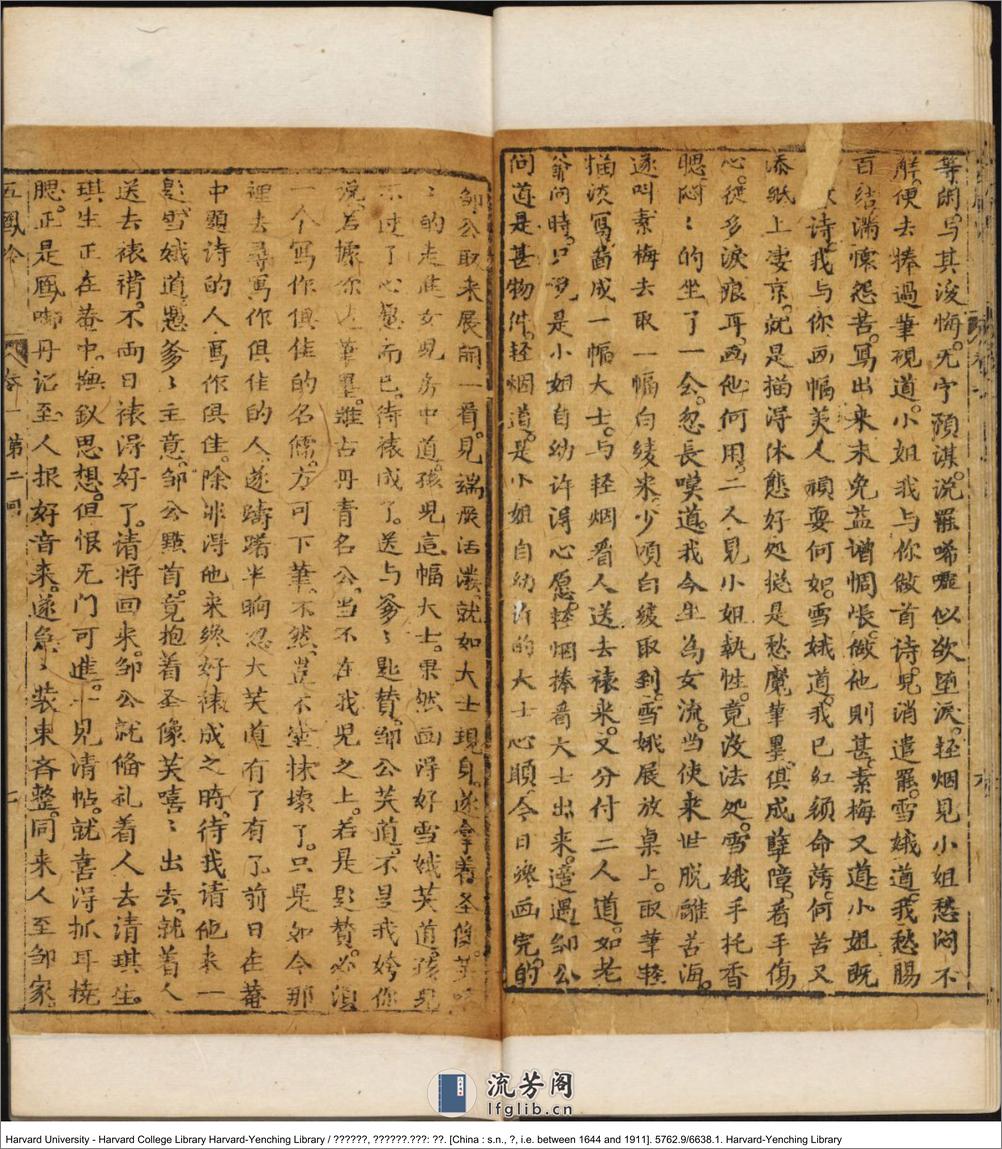 等閑。与其後悔。无宁預谋。说罷唏嘘似欲堕淚。輕烟見小姐愁闷不
解。便去捧過筆硯道。小姐我与你做首诗児消遣罷。雪娥道。我愁腸
百结。满懷怨苦。寫出来未免益增惆悵。做他則甚。素梅又道。小姐既
诗。我与你画幅美人頑耍何如。雪娥道。我已红颜命荡。何苦又
添紙上凄凉。就是描得体態好処。捴是愁魔。筆墨俱成孽障。着手傷
心。徒多淚痕耳。画他何用。二人見小姐執性。竟没法処。雪娥手托香
腮。闷〻的坐了一会。忽長嘆道。我今生为女流。当使来世脱離苦海。
遂叫素梅去取一幅白绫来。少頃白绫取到。雪娥展放桌上。取筆轻
描淡寫畫成一幅大士。与轻烟着人送去裱来。又分付二人道。如老
爷问時。只说是小姐自幼许得心愿。轻烟捧着大士出来。邊遇邹公
问道。是甚物件。轻烟道。是小姐自幼许的大士心願。今日缘画完的。
邹公取来展開一看。見端庄活潑。就如大士現身。遂拿着圣像。笑嘻
〻的走進女児房中道。孩児這幅大士。果然画得好。雪娥笑道。孩児
不过了心愿而已。待裱成了。送与爹〻題赞。邹公笑道。不是我誇你
说。若據你这筆墨。雖古丹青名公。当不在我児之上。若是題赞。必須
一个寫作俱佳的名儒。方可下筆。不然豈不塗抹壊了。只是如今那
裡去尋寫作俱佳的人。遂躊躇半晌。忽大笑道。有了有了。前日在菴
中題诗的人。寫作俱佳。除非得他来終好。裱成之時。待我请他来一
題。雪娥道。憑爹〻主意。邹公點首。竟抱着圣像笑嘻〻出去。就着人
送去裱褙。不両日裱得好了。请将回来。邹公就俻礼着人去请琪生。
琪生正在菴中。撫釵思想。但恨无门可進。一見请帖。就喜得抓耳撓
腮。正是鳳啣丹记至。人报好音来。遂急〻装束齐整。同来人至邹家
五鳳吟 卷一 第二回
流芳阁
lfglib.cn
Harvard University - Harvard College Library Harvard-Yenching Library / ??????, ??????.???: ??. [China : s.n., ?, i.e. between 1644 and 1911]. 5762.9/6638.1. Harvard-Yenching Library